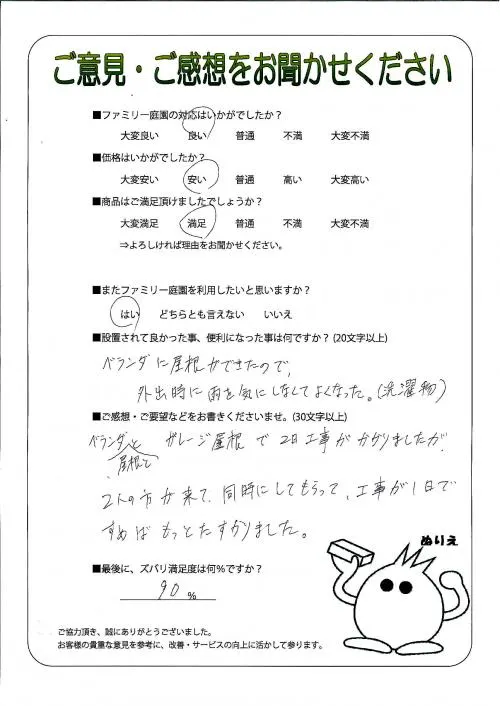 ご意見・ご感想をお聞かせください
■ファミリー庭園の対応はいかがでしたか？
大変良い 良い 普通 不満 大変不満
■価格はいかがでしたか？
大変安い 安い 普通 高い 大変高い
■商品はご満足頂けましたでしょうか？
大変満足 満足 普通 不満 大変不満
⇒よろしければ理由をお聞かせください。
■またファミリー庭園を利用したいと思いますか？
はい どちらとも言えない いいえ
■設置されて良かった事、便利になった事は何ですか？(20文字以上)
ベランダに屋根ができたので、
外出時に雨を気にしなくてよくなった。(洗濯物)
■ご感想・ご要望などをお書きくださいませ。(30文字以上)
ベランダと ガレージ屋根で2日工事がかかりましたが、
屋根と
2人の方が来て、同時にしてもらって、工事が1日で
すめばもっとたすかりました。
ぬりえ
■最後に、ズバリ満足度は何％ですか？
90 %
ご協力頂き、誠にありがとうございました。
お客様の貴重な意見を参考に、改善・サービスの向上に活かして参ります。